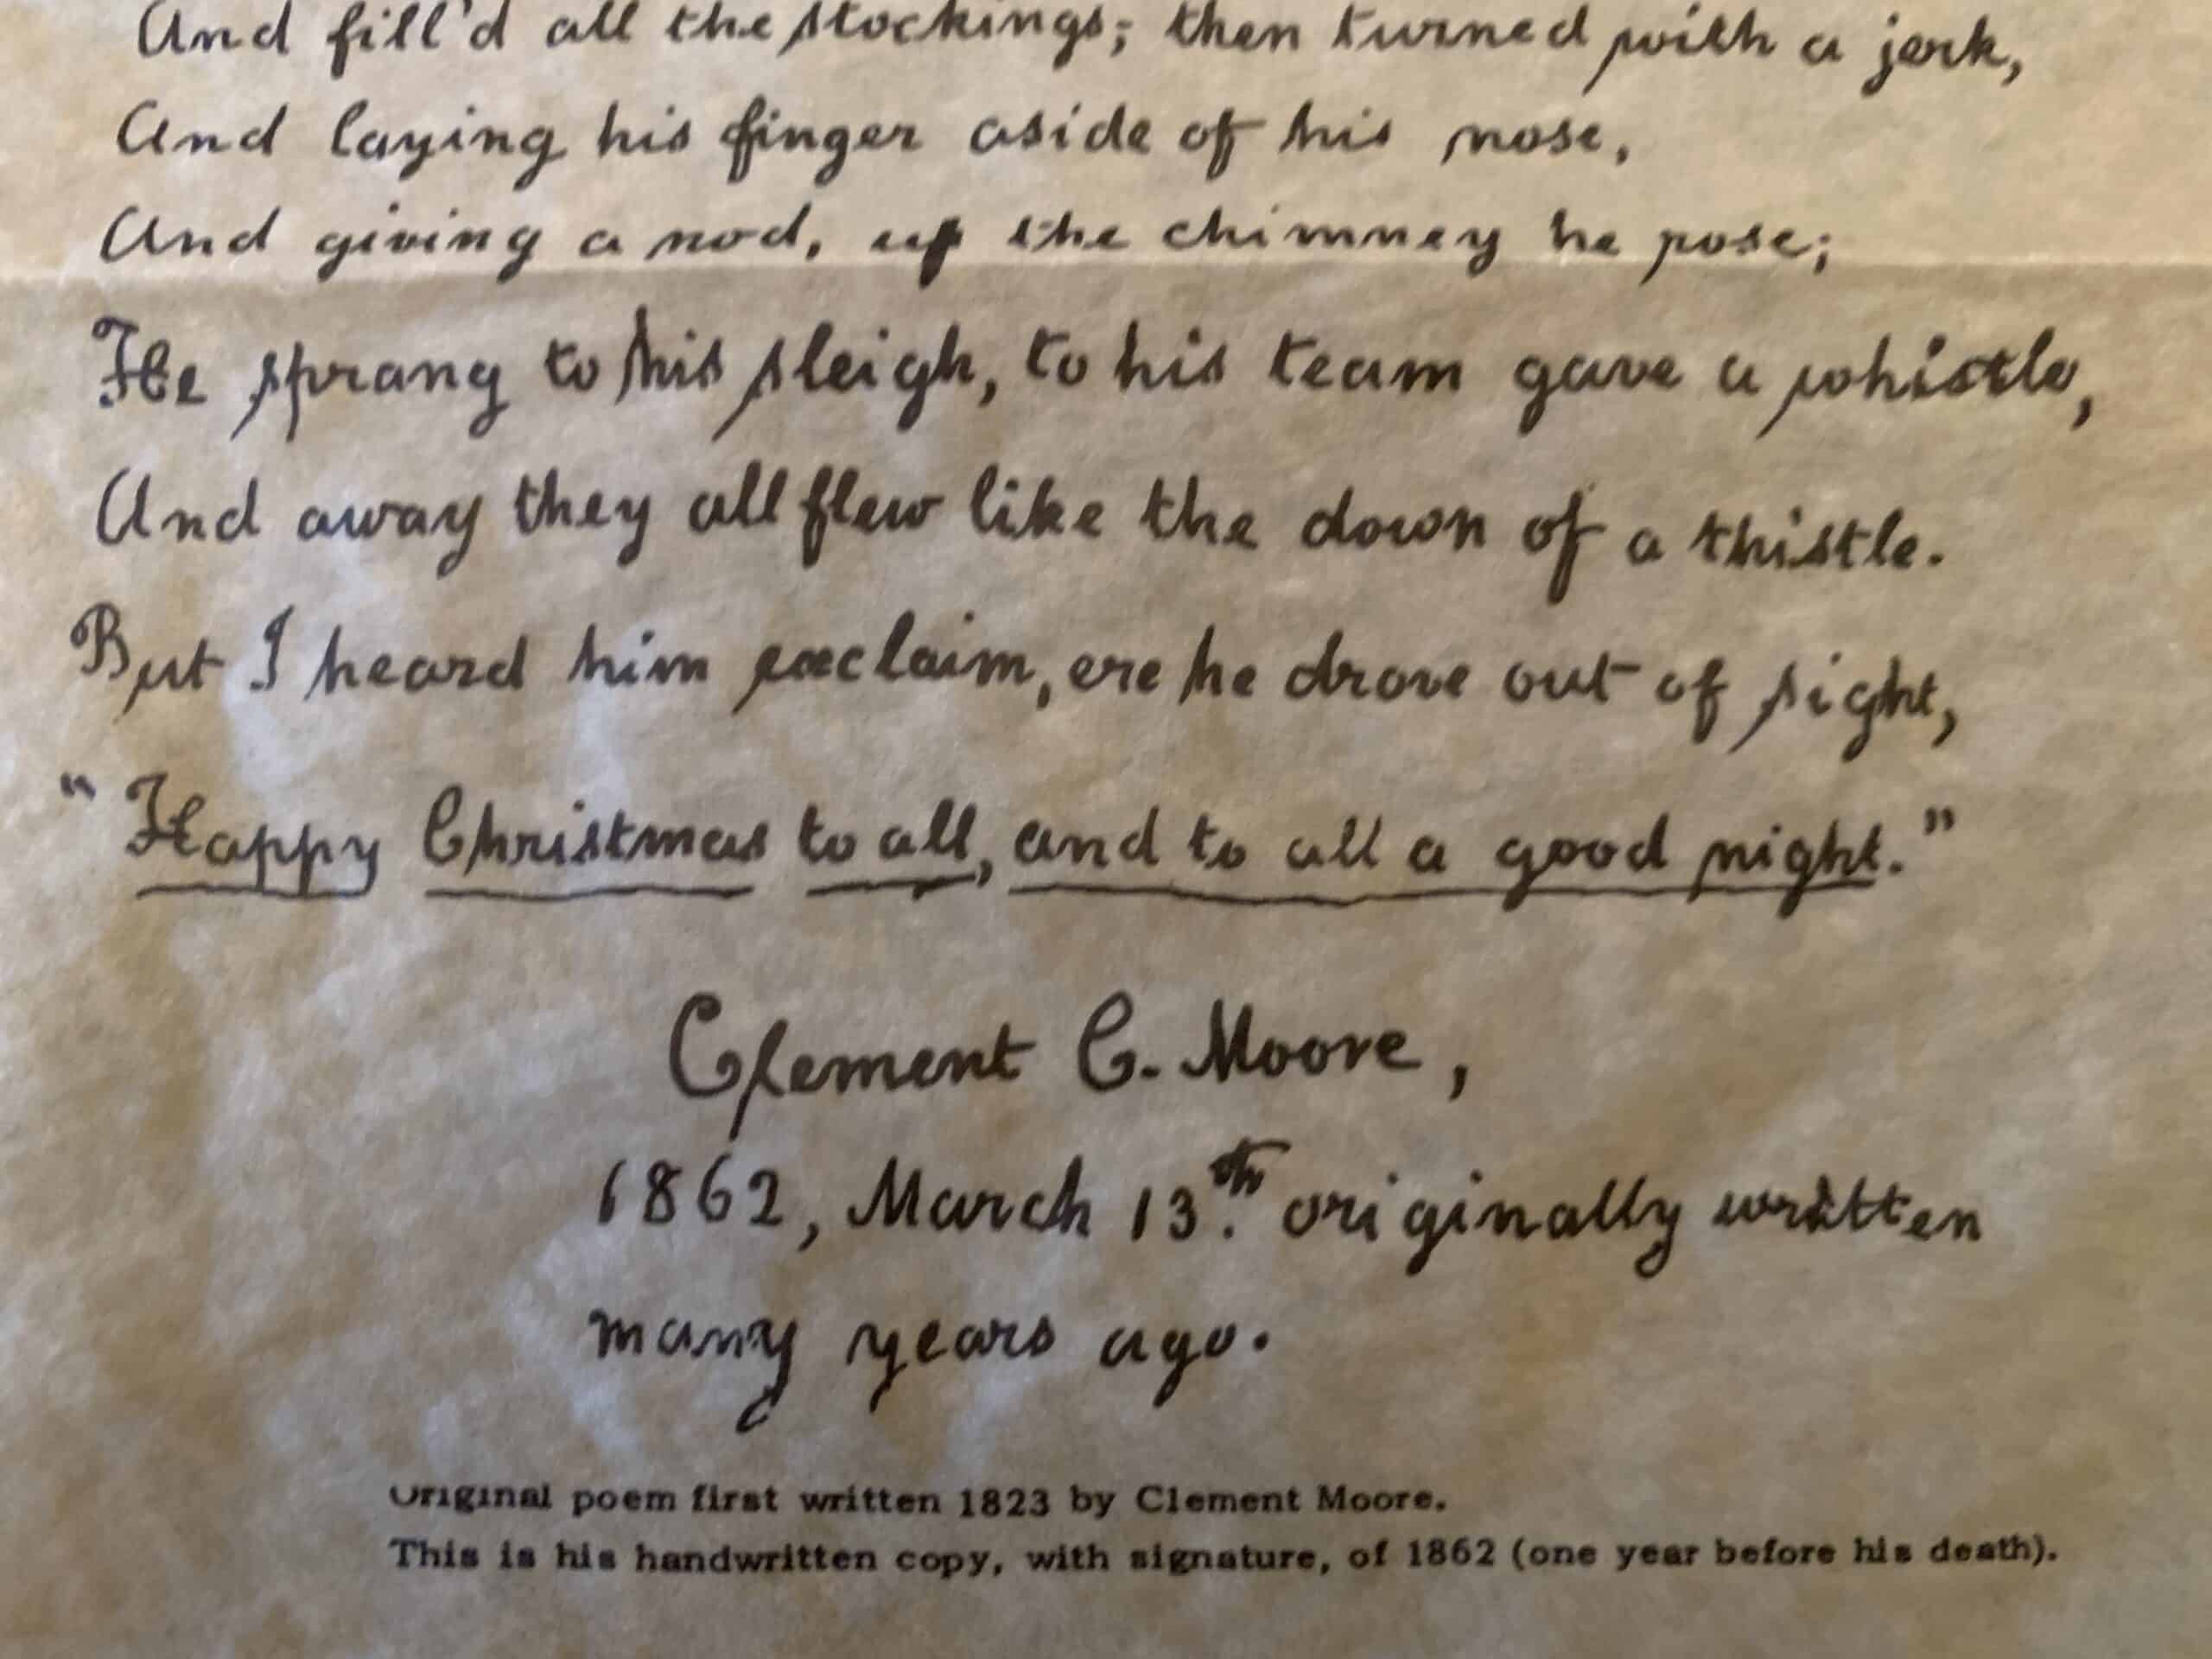 And fill'd all the stockings; then turned with a jerk,
And laying his finger aside of his nose,
And giving a nod, up the chimney he rose;
He sprang to his sleigh, to his team gave a whistle,
And away they all flew like the down of a thistle.
But I heard him exclaim, ere he drove out of sight,
"Happy Christmas to all, and to all a good night."
Clement C. Moore,
1862, March 13th. originally written
many years ago.
Original poem first written 1823 by Clement Moore.
This is his handwritten copy, with signature, of 1862 (one year before his death).